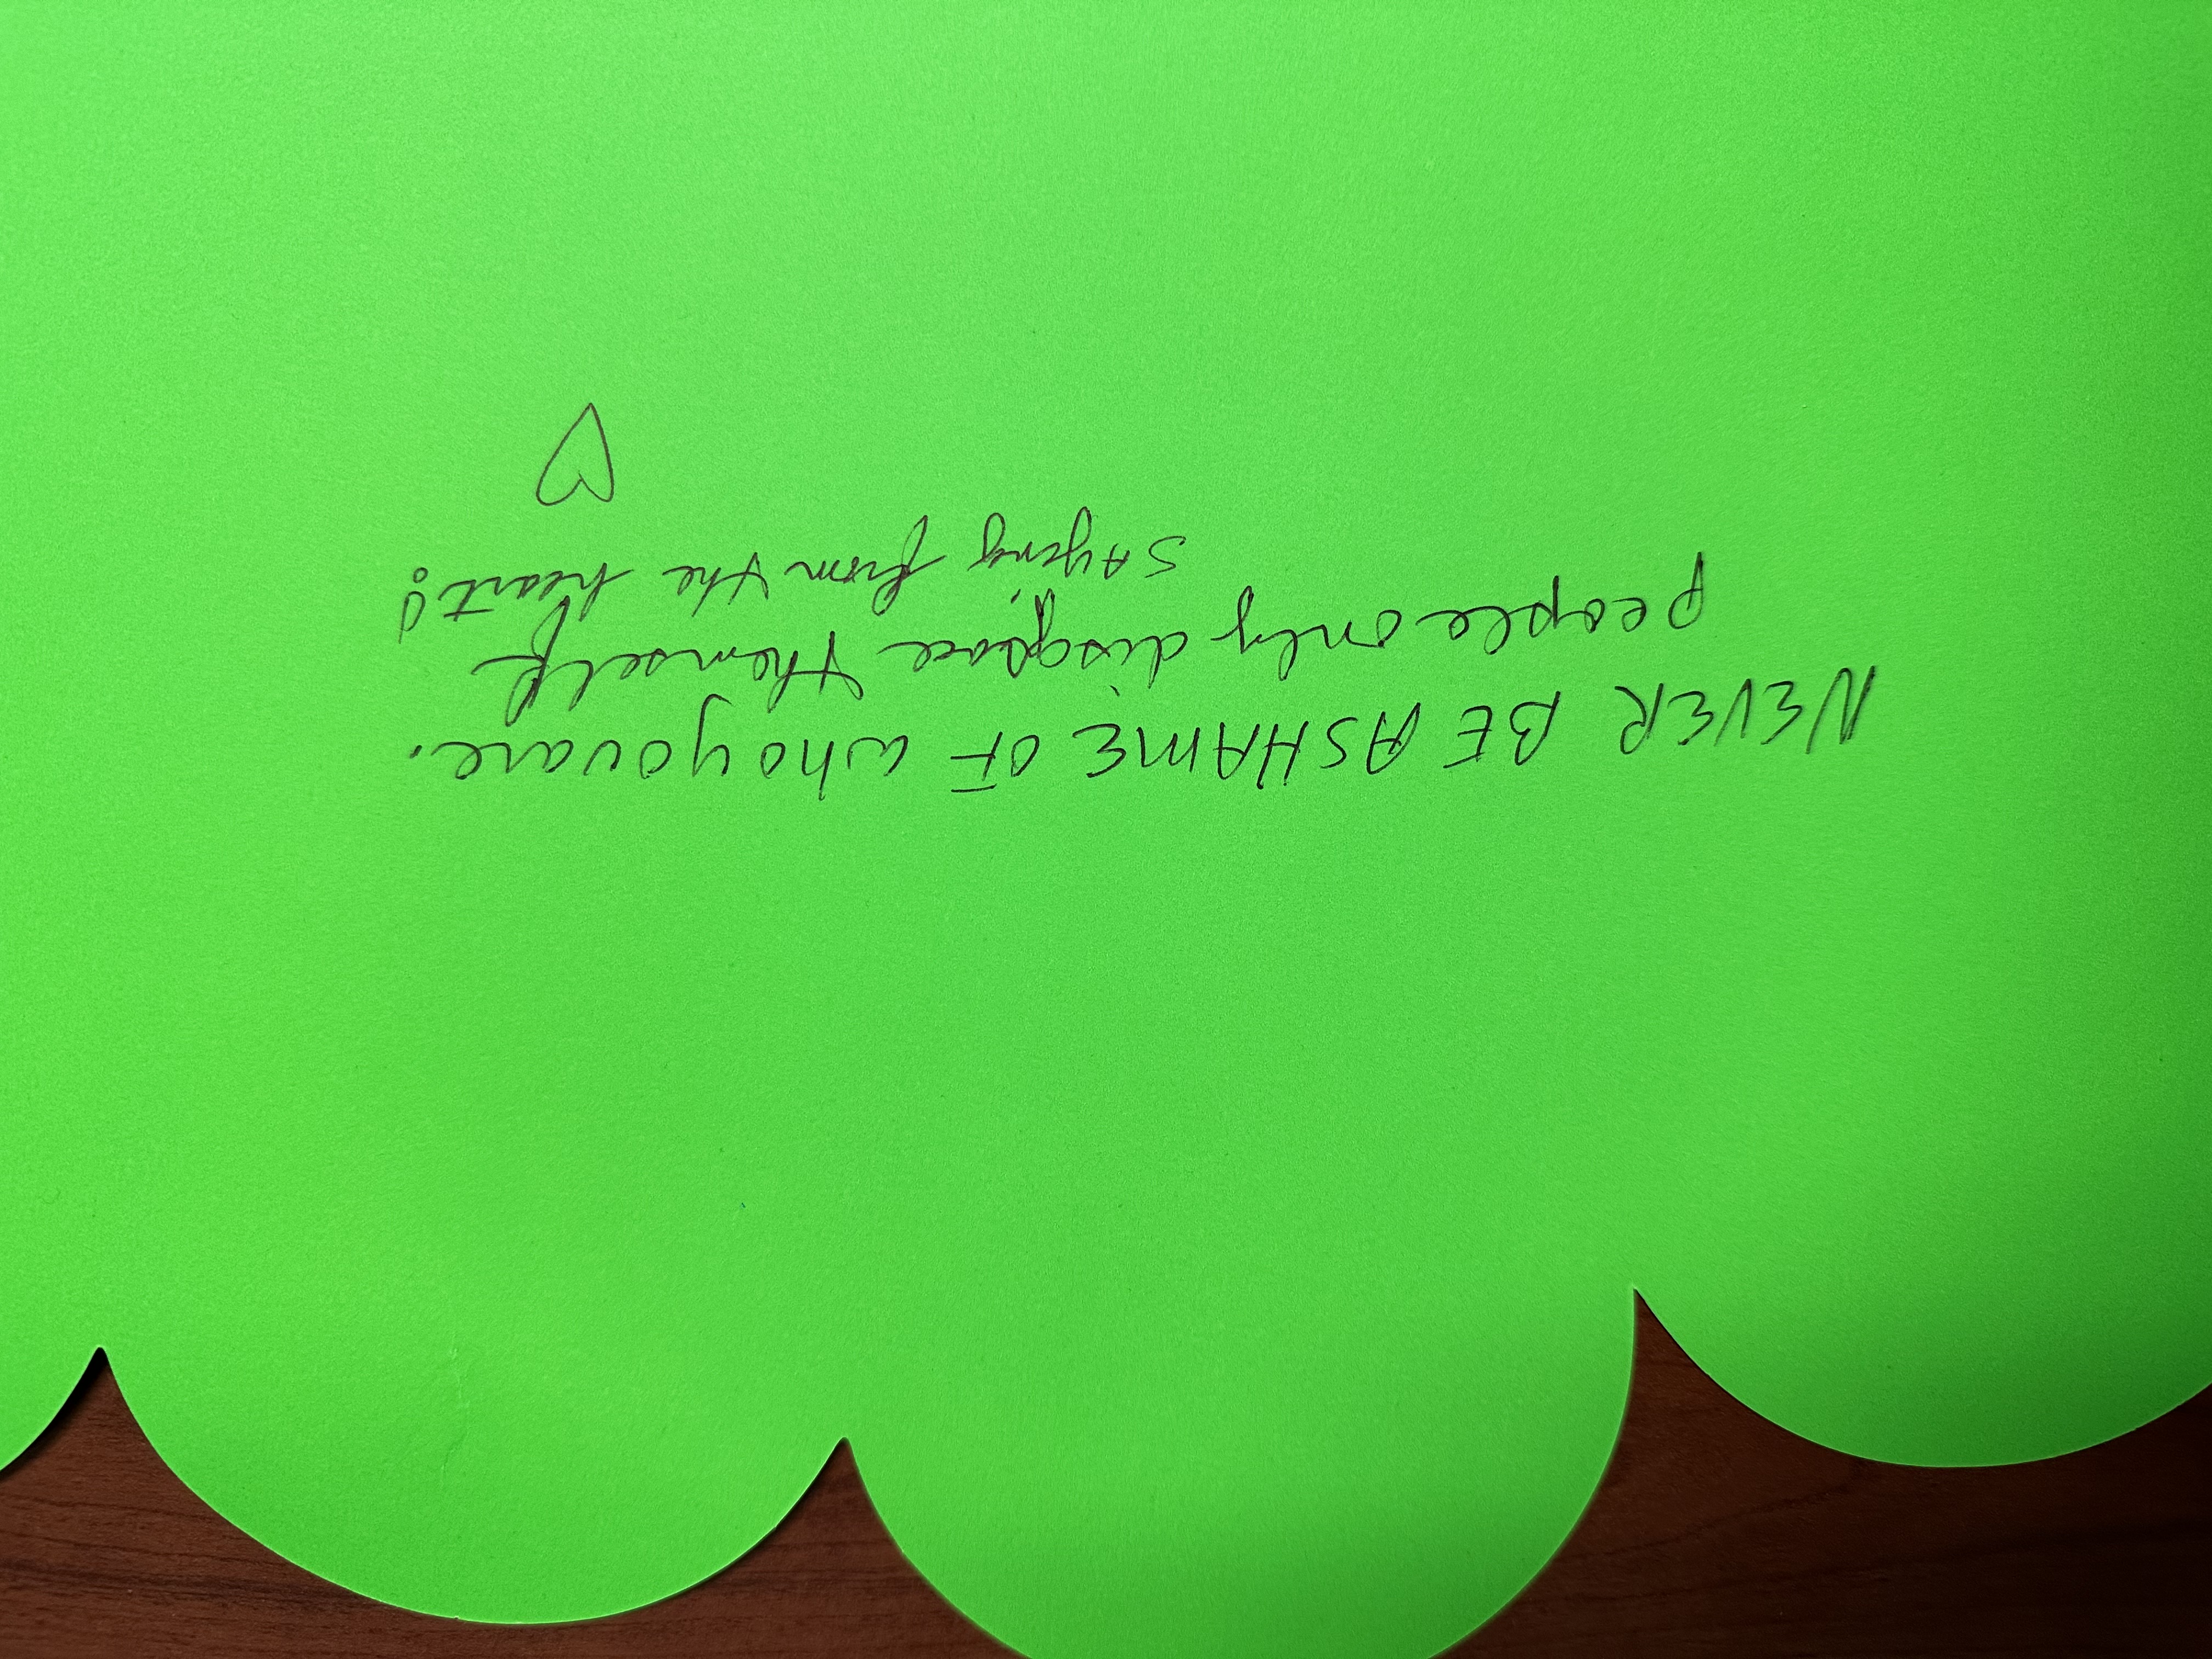 NEVER BE ASHAME OF who you are.
people only disgrace themself
SAying from the heart!